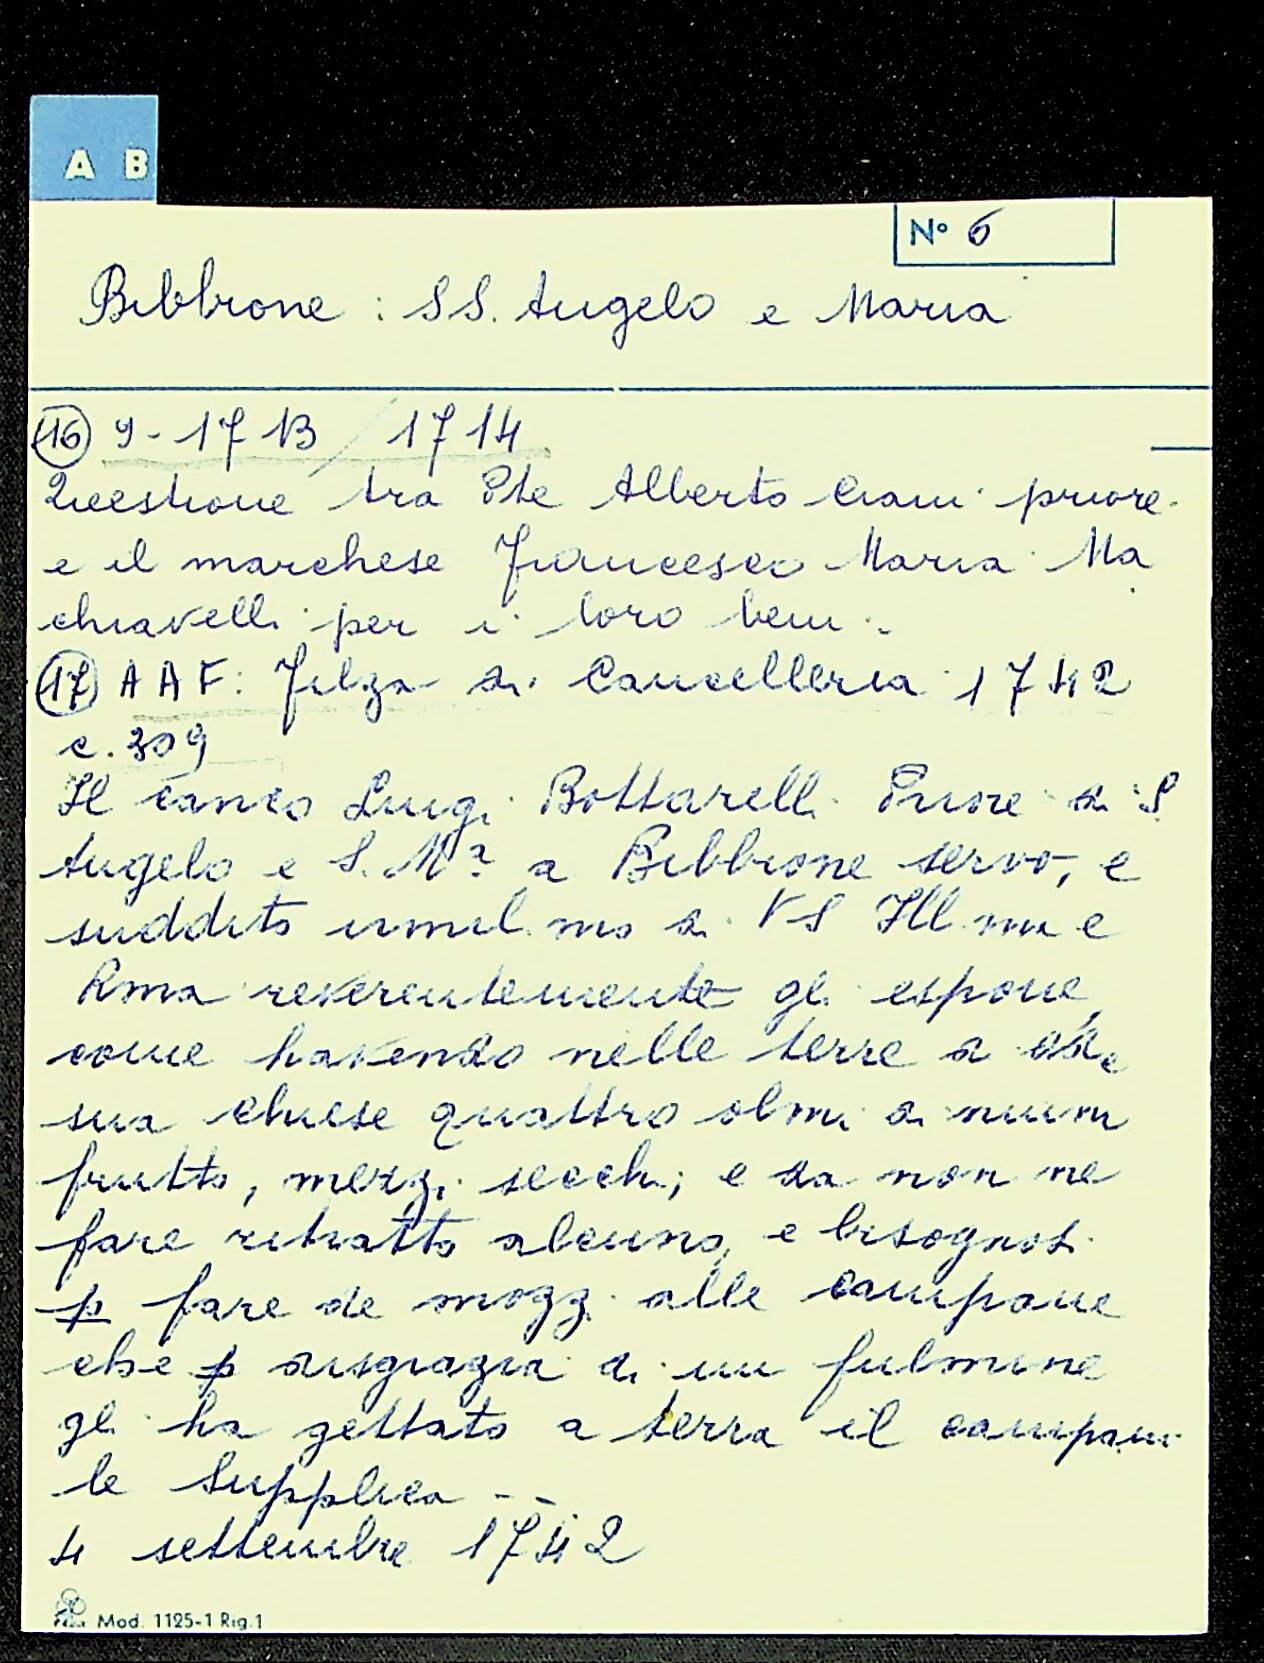 A B
N° 6
Bibbione : SS. Angelo e Maria
16 9 - 1713 / 1714
Questione tra Pte Alberto Ciani priore
e il marchese Francesco Maria Ma
chiavelli per i loro beni.
17 AAF: Filza di Cancelleria 1742
c. 309
Il canco Luigi Bottarelli Priore di S.
Angelo e S. Mª a Bibbione servo, e
suddito umil.mo di VS Ill.ma e
Rma reverentemente gli espone,
come havendo nelle terre di
sua chiese quattro olmi di niun
frutto, mezzi secchi; e da non ne
fare ritratto alcuno, e bisognosi
p fare de mozzi alle campane
che p disgrazia di un fulmine
gli ha gettato a terra il campani
le Supplica --
4 settembre 1742
Mod. 1125-1 Rig.1